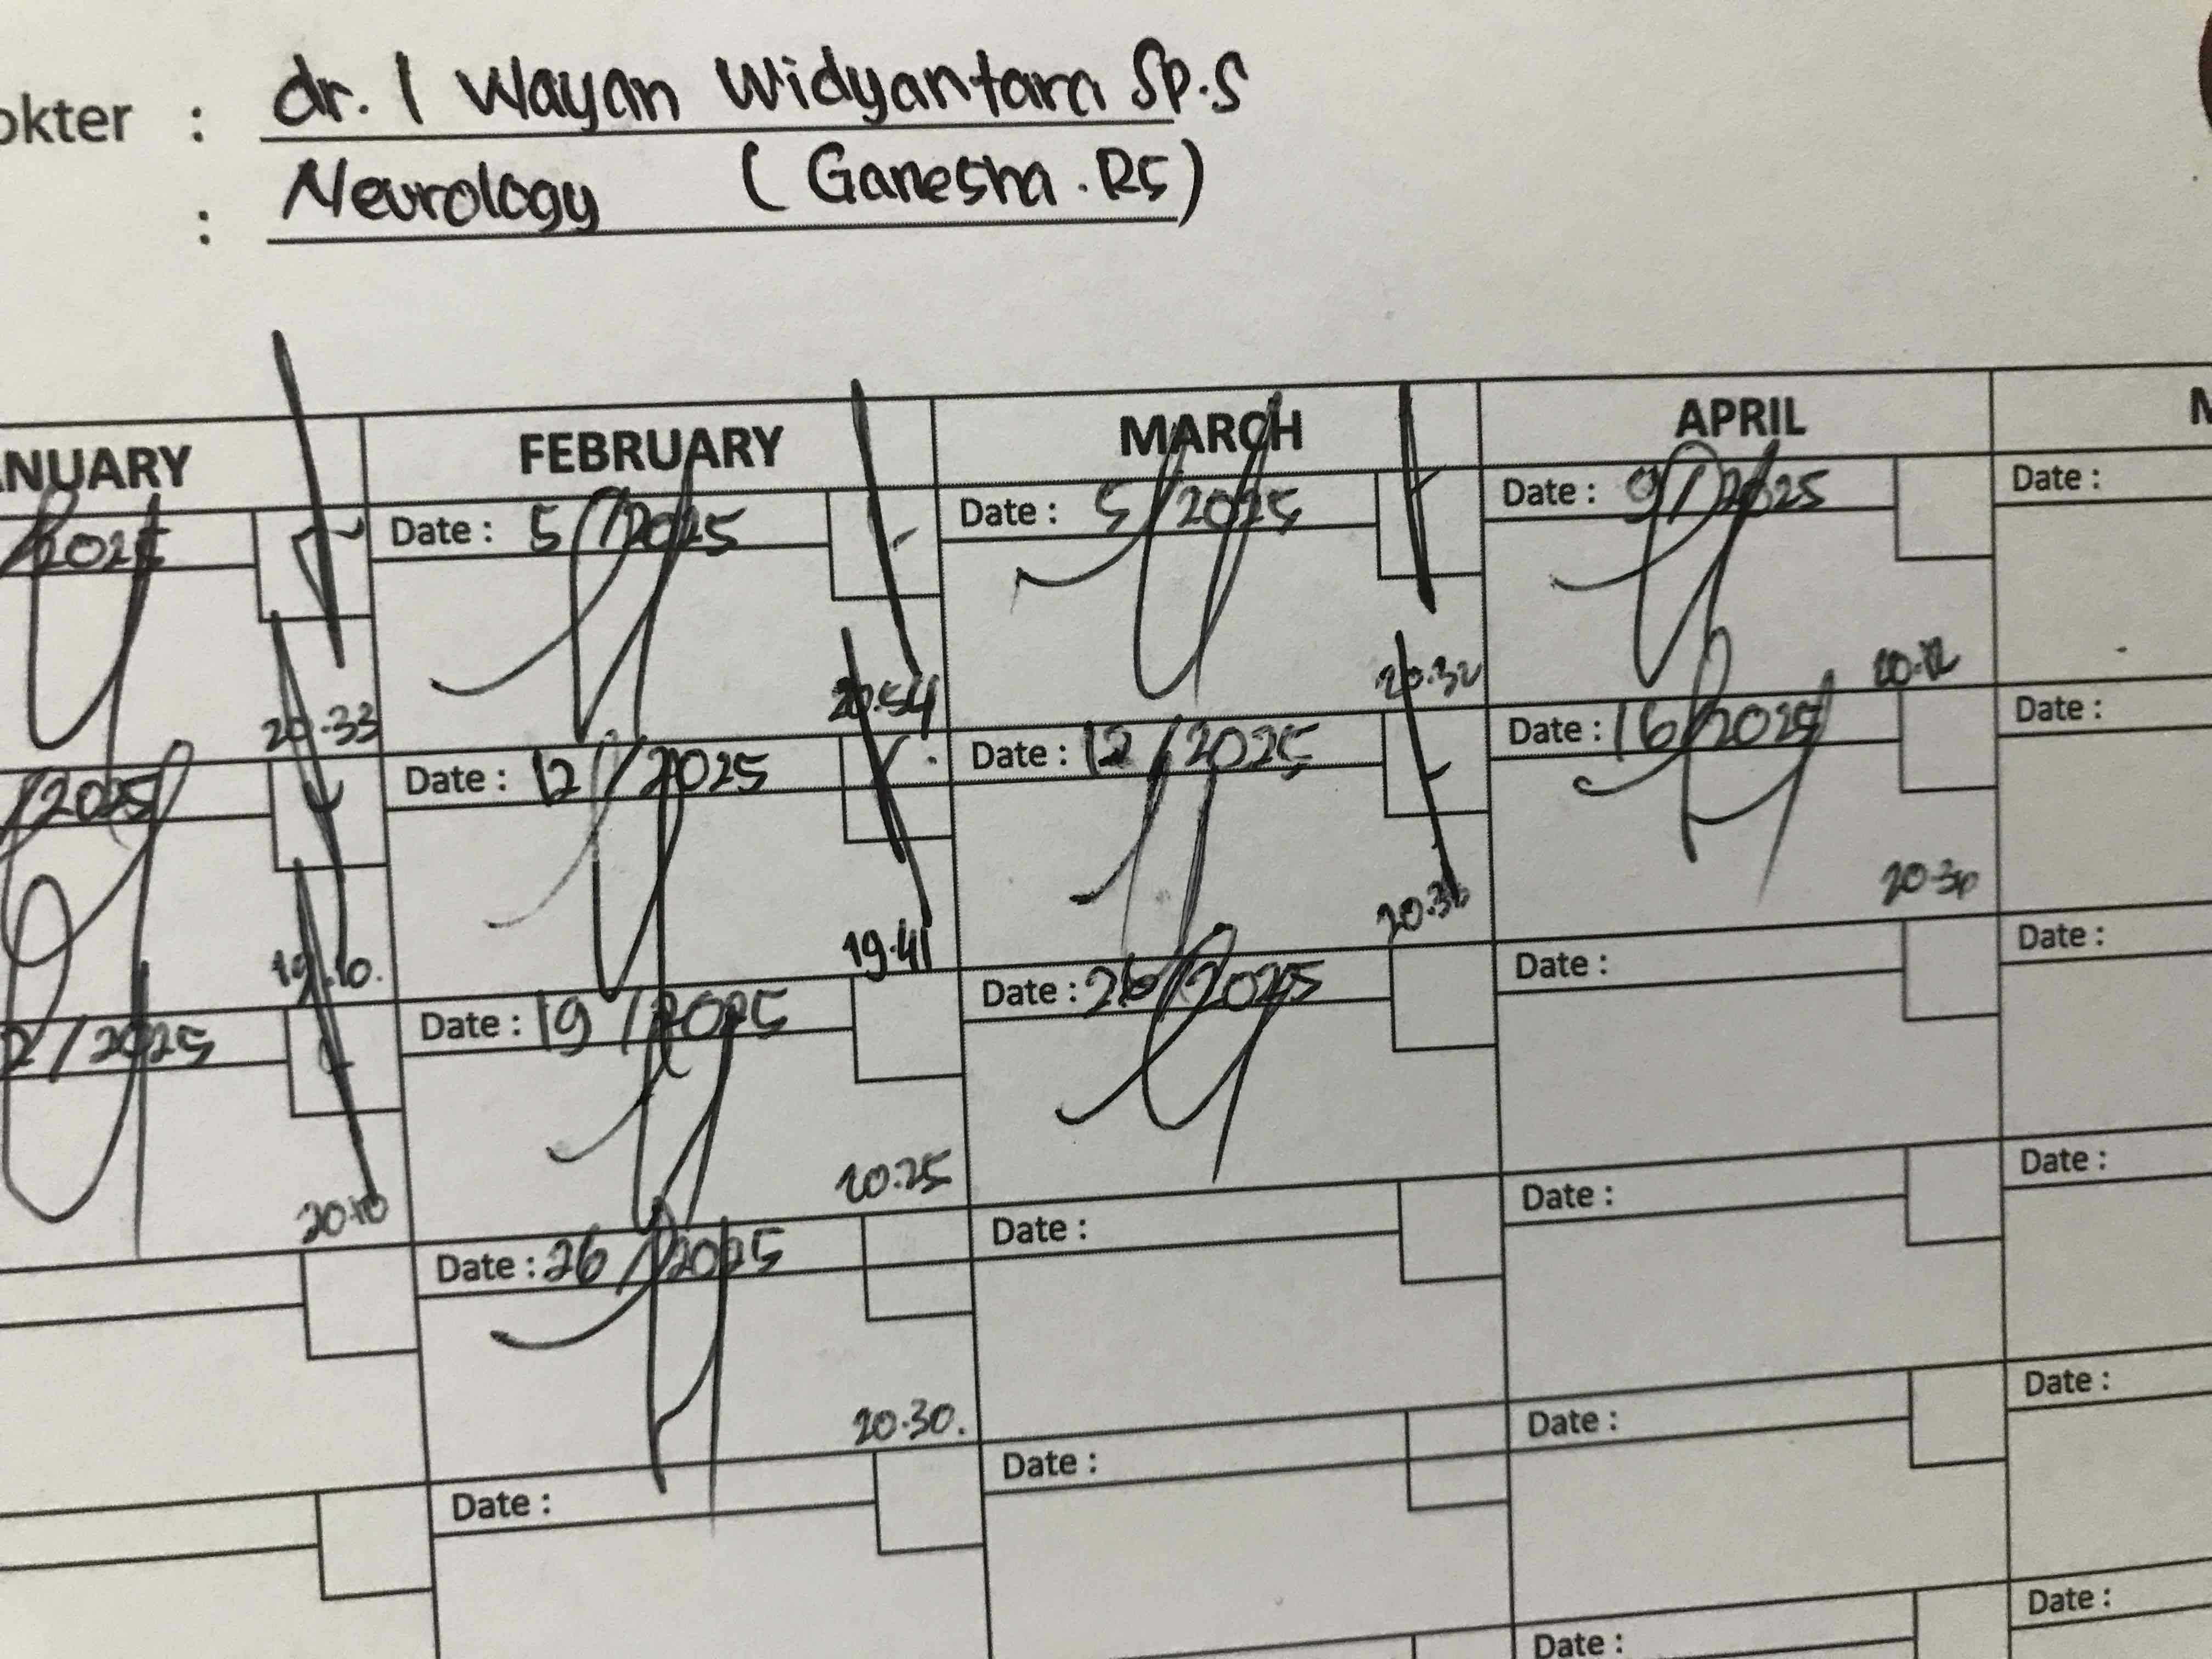 okter : dr. I Wayan Widyantara Sp.S
: Neurology (Ganesha.RS)
ANUARY FEBRUARY MARCH APRIL M
/2025 Date : 5 /2025 Date : 5 /2025 Date : 9/2025 Date :
20.33 20.54 20.32 20.12
/2025 Date : 12 /2025 Date : 12 /2025 Date : 16/2025 Date :
19.10. 19.41 20.36 20.30
2/2025 Date : 19 /2025 Date : 26/2025 Date : Date :
20.10 20.25
Date : 26 /2025 Date : Date : Date :
20.30.
Date : Date : Date : Date :
Date : Date :